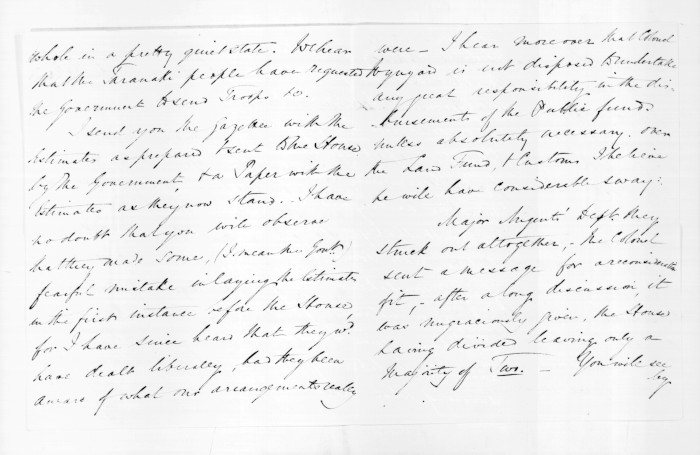 whole in a pretty quiet state. We hear
that the Taranaki people have requested
the Government to send Troops &c.
I send you the gazettee with the
Estimates as prepared & sent the House
by the Government, & a Paper with the
Estimates as they now stand. I have
no doubt that you will observe
that they made some, (I mean the Govt.)
fearful mistake in laying the Estimates
in the first instance before the House,
for I have since heard that they wd.
have dealt liberally, had they been
aware of what our arrangements really
were - I hear moreover that Colonel
Wynyard is not disposed to undertake
any great responsibility in the dis-
bursements of the Public funds
unless absolutely necessary. over
the Land Fund, & Customs I believe
he will have considerable sway:
Major Nugents' Dept. they
struck out altogether, - the Colonel
sent a message for a reconsideration
of it, - after a long discussion, it
was ungraciously given, the House
having divided leaving only a
Majority of Two. - You will see
by